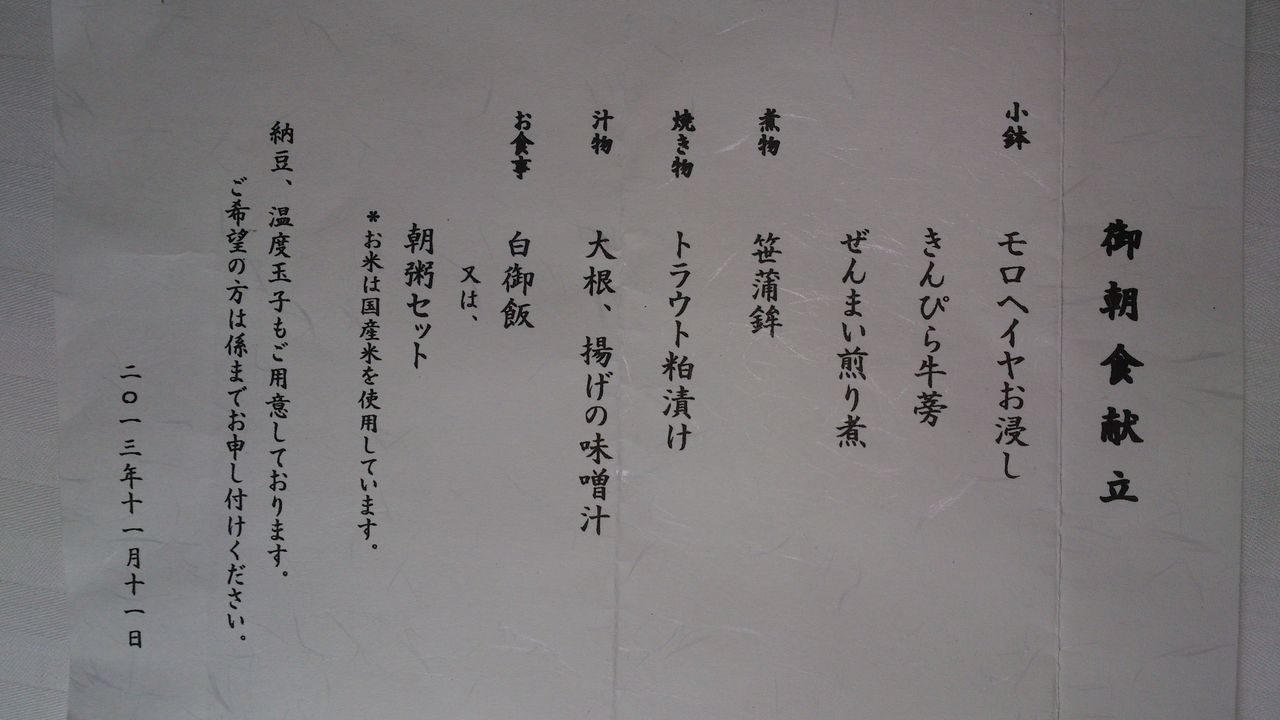 御朝食献立
小鉢 モロヘイヤお浸し
きんぴら牛蒡
ぜんまい煎り煮
煮物 笹蒲鉾
焼き物 トラウト粕漬け
汁物 大根、揚げの味噌汁
お食事 白御飯
又は、
朝粥セット
*お米は国産米を使用しています。
納豆、温度玉子もご用意しております。
ご希望の方は係までお申し付けください。
二〇一三年十一月十一日